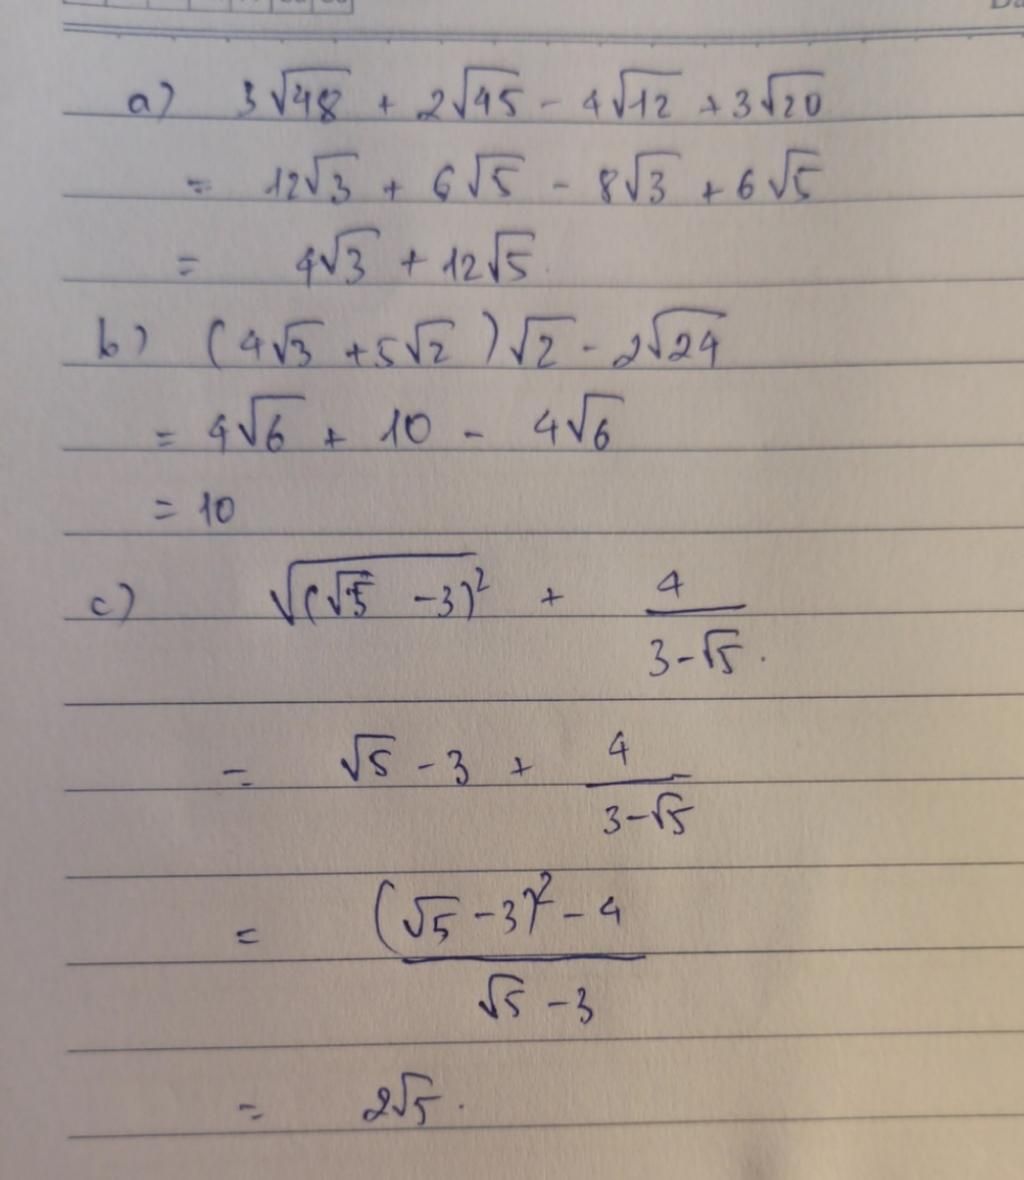 a) 3√48 + 2√45 - 4√12 + 3√20
= 12√3 + 6√5 - 8√3 + 6√5
= 4√3 + 12√5.
b) (4√3 + 5√2)√2 - 2√24
= 4√6 + 10 - 4√6
= 10
c) √((√5 - 3)²) + 4/(3-√5).
= √5 - 3 + 4/(3-√5)
= ((√5 - 3)² - 4)/(√5 - 3)
= 2√5.